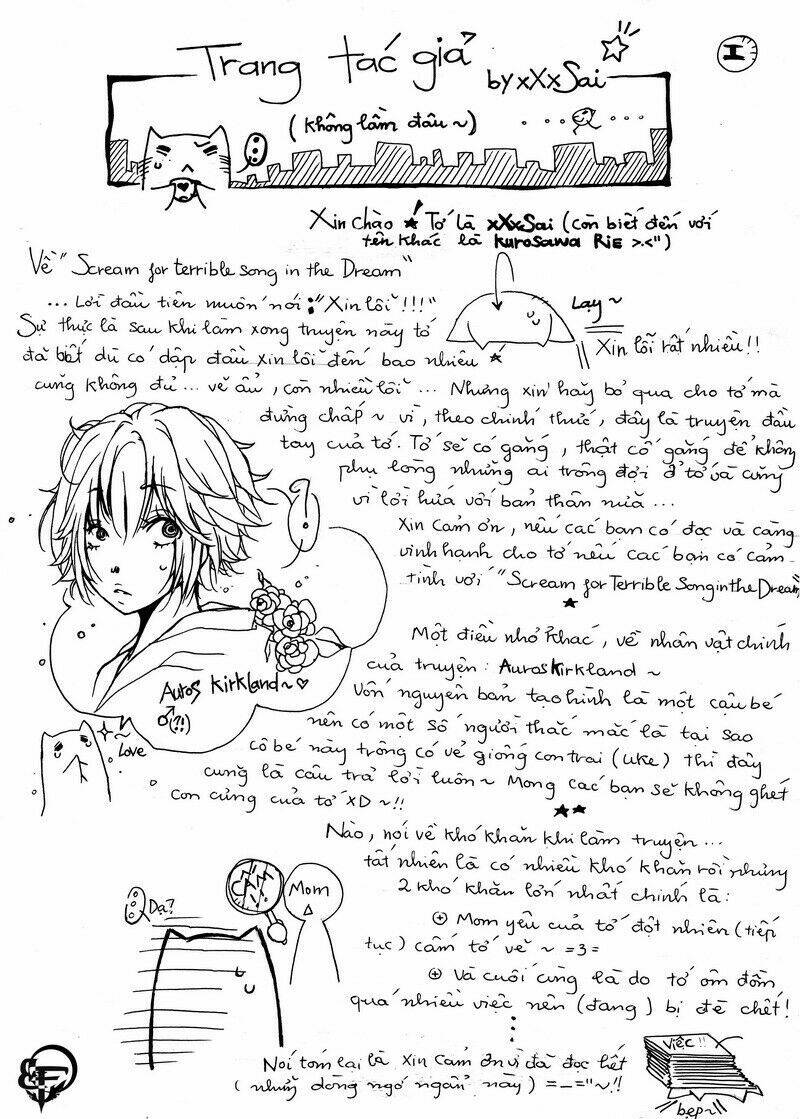 Trang tác giả
by xXxSai
I
(không lầm đâu ~)
Xin chào ! Tớ là xXxSai (còn biết đến với
tên khác là Kurosawa Rie >.<")
Về "Scream for terrible song in the Dream"
... Lời đầu tiên muốn nói : "Xin lỗi !!!"
Lạy ~
Sự thực là sau khi làm xong truyện này tớ
Xin lỗi rất nhiều!!
đã biết dù có dập đầu xin lỗi đến bao nhiêu
cũng không đủ ... vẽ ẩu , còn nhiều lỗi ... Nhưng xin hãy bỏ qua cho tớ mà
đừng chấp ~ vì , theo chính thức , đây là truyện đầu
tay của tớ. Tớ sẽ cố gắng , thật cố gắng để không
phụ lòng những ai trông đợi ở tớ và cũng
vì lời hứa với bản thân nữa ...
?
Xin cảm ơn , nếu các bạn có đọc và càng
vinh hạnh cho tớ nếu các bạn có cảm
tình với "Scream for Terrible Song in the Dream"
Một điều nhỏ khác , về nhân vật chính
của truyện : Auros Kirkland ~
Auros Kirkland ~
♂(?!)
Vốn nguyên bản tạo hình là một cậu bé
nên có một số người thắc mắc là tại sao
~ Love
cô bé này trông có vẻ giống con trai (uke) thì đây
cũng là câu trả lời luôn ~ Mong các bạn sẽ không ghét
con cưng của tớ XD ~!!
Nào , nói về khó khăn khi làm truyện ...
tất nhiên là có nhiều khó khăn rồi nhưng
2 khó khăn lớn nhất chính là :
CẤM
Mom
Dạ?
⊕ Mom yêu của tớ đột nhiên (tiếp
tục) cấm tớ vẽ ~ =3=
⊕ Và cuối cùng là do tớ ôm đồm
quá nhiều việc nên (đang) bị đè chết!
Nói tóm lại là xin cảm ơn vì đã đọc hết
(những dòng ngớ ngẩn này) =_="~!!
việc !!
bẹp ~!!